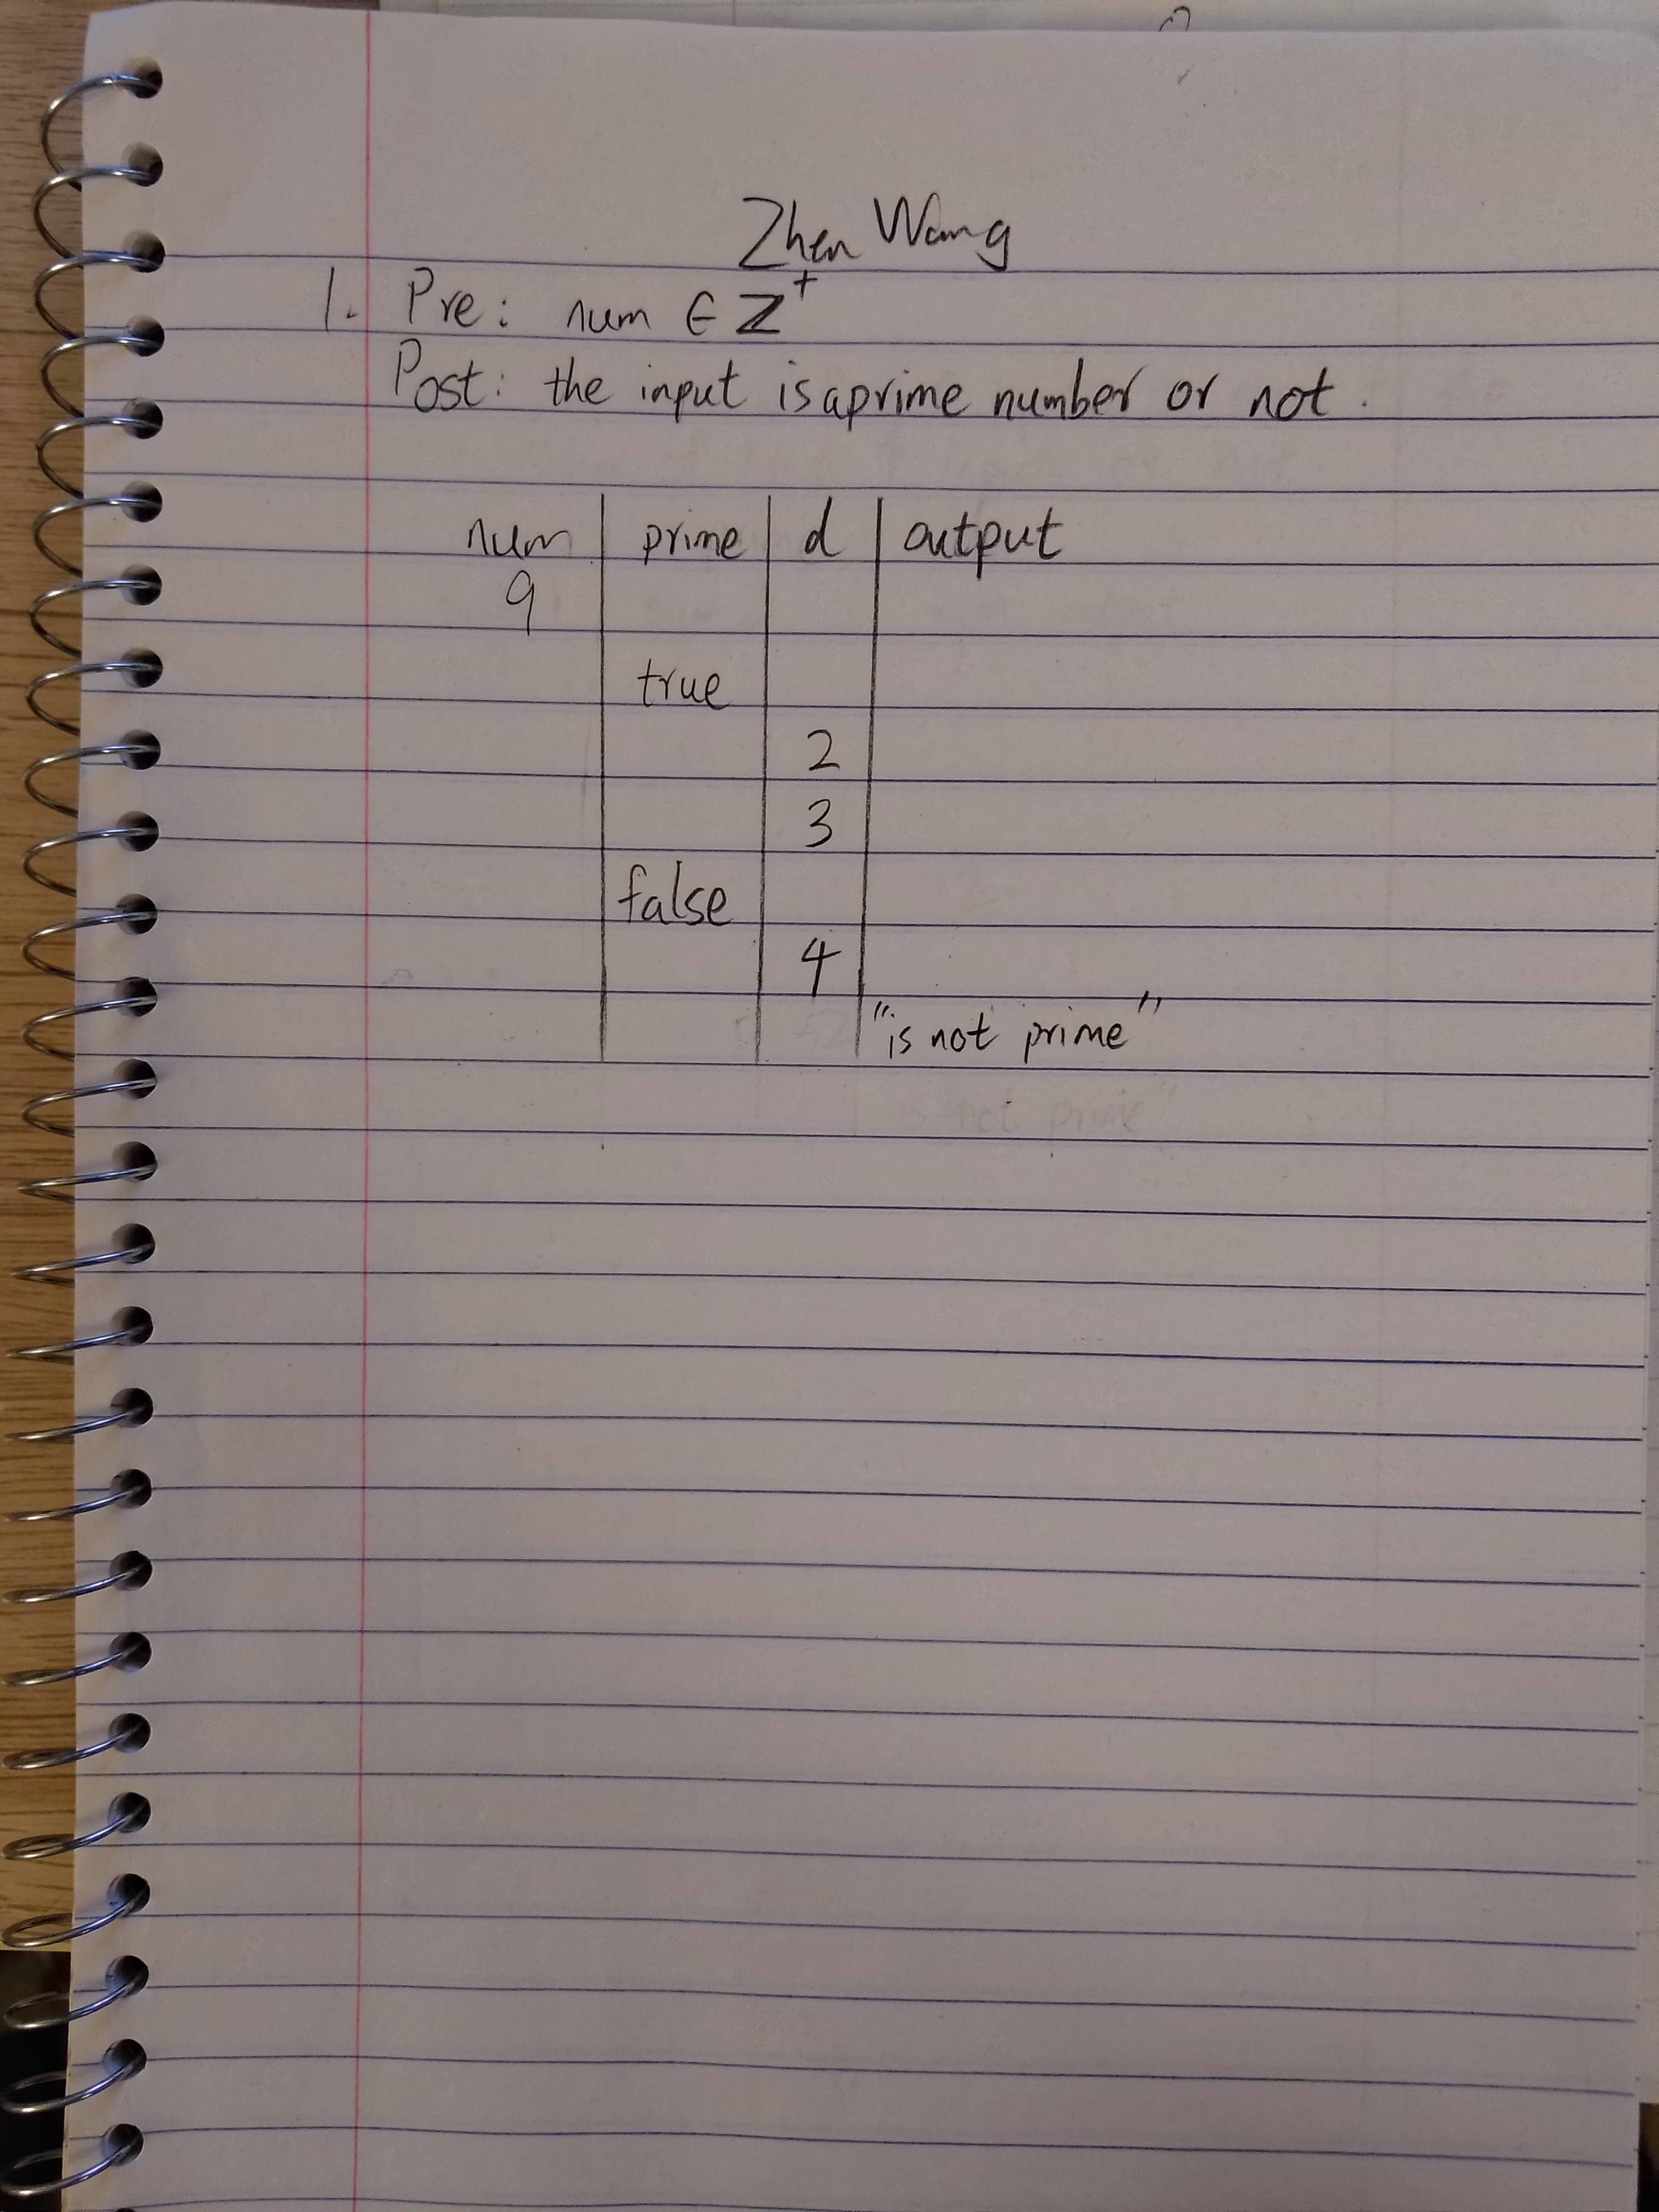 Zhen Wang
1. Pre: num ∈ Z⁺
Post: the input is a prime number or not.
num | prime | d | output
9
true
2
3
false
4
"is not prime"